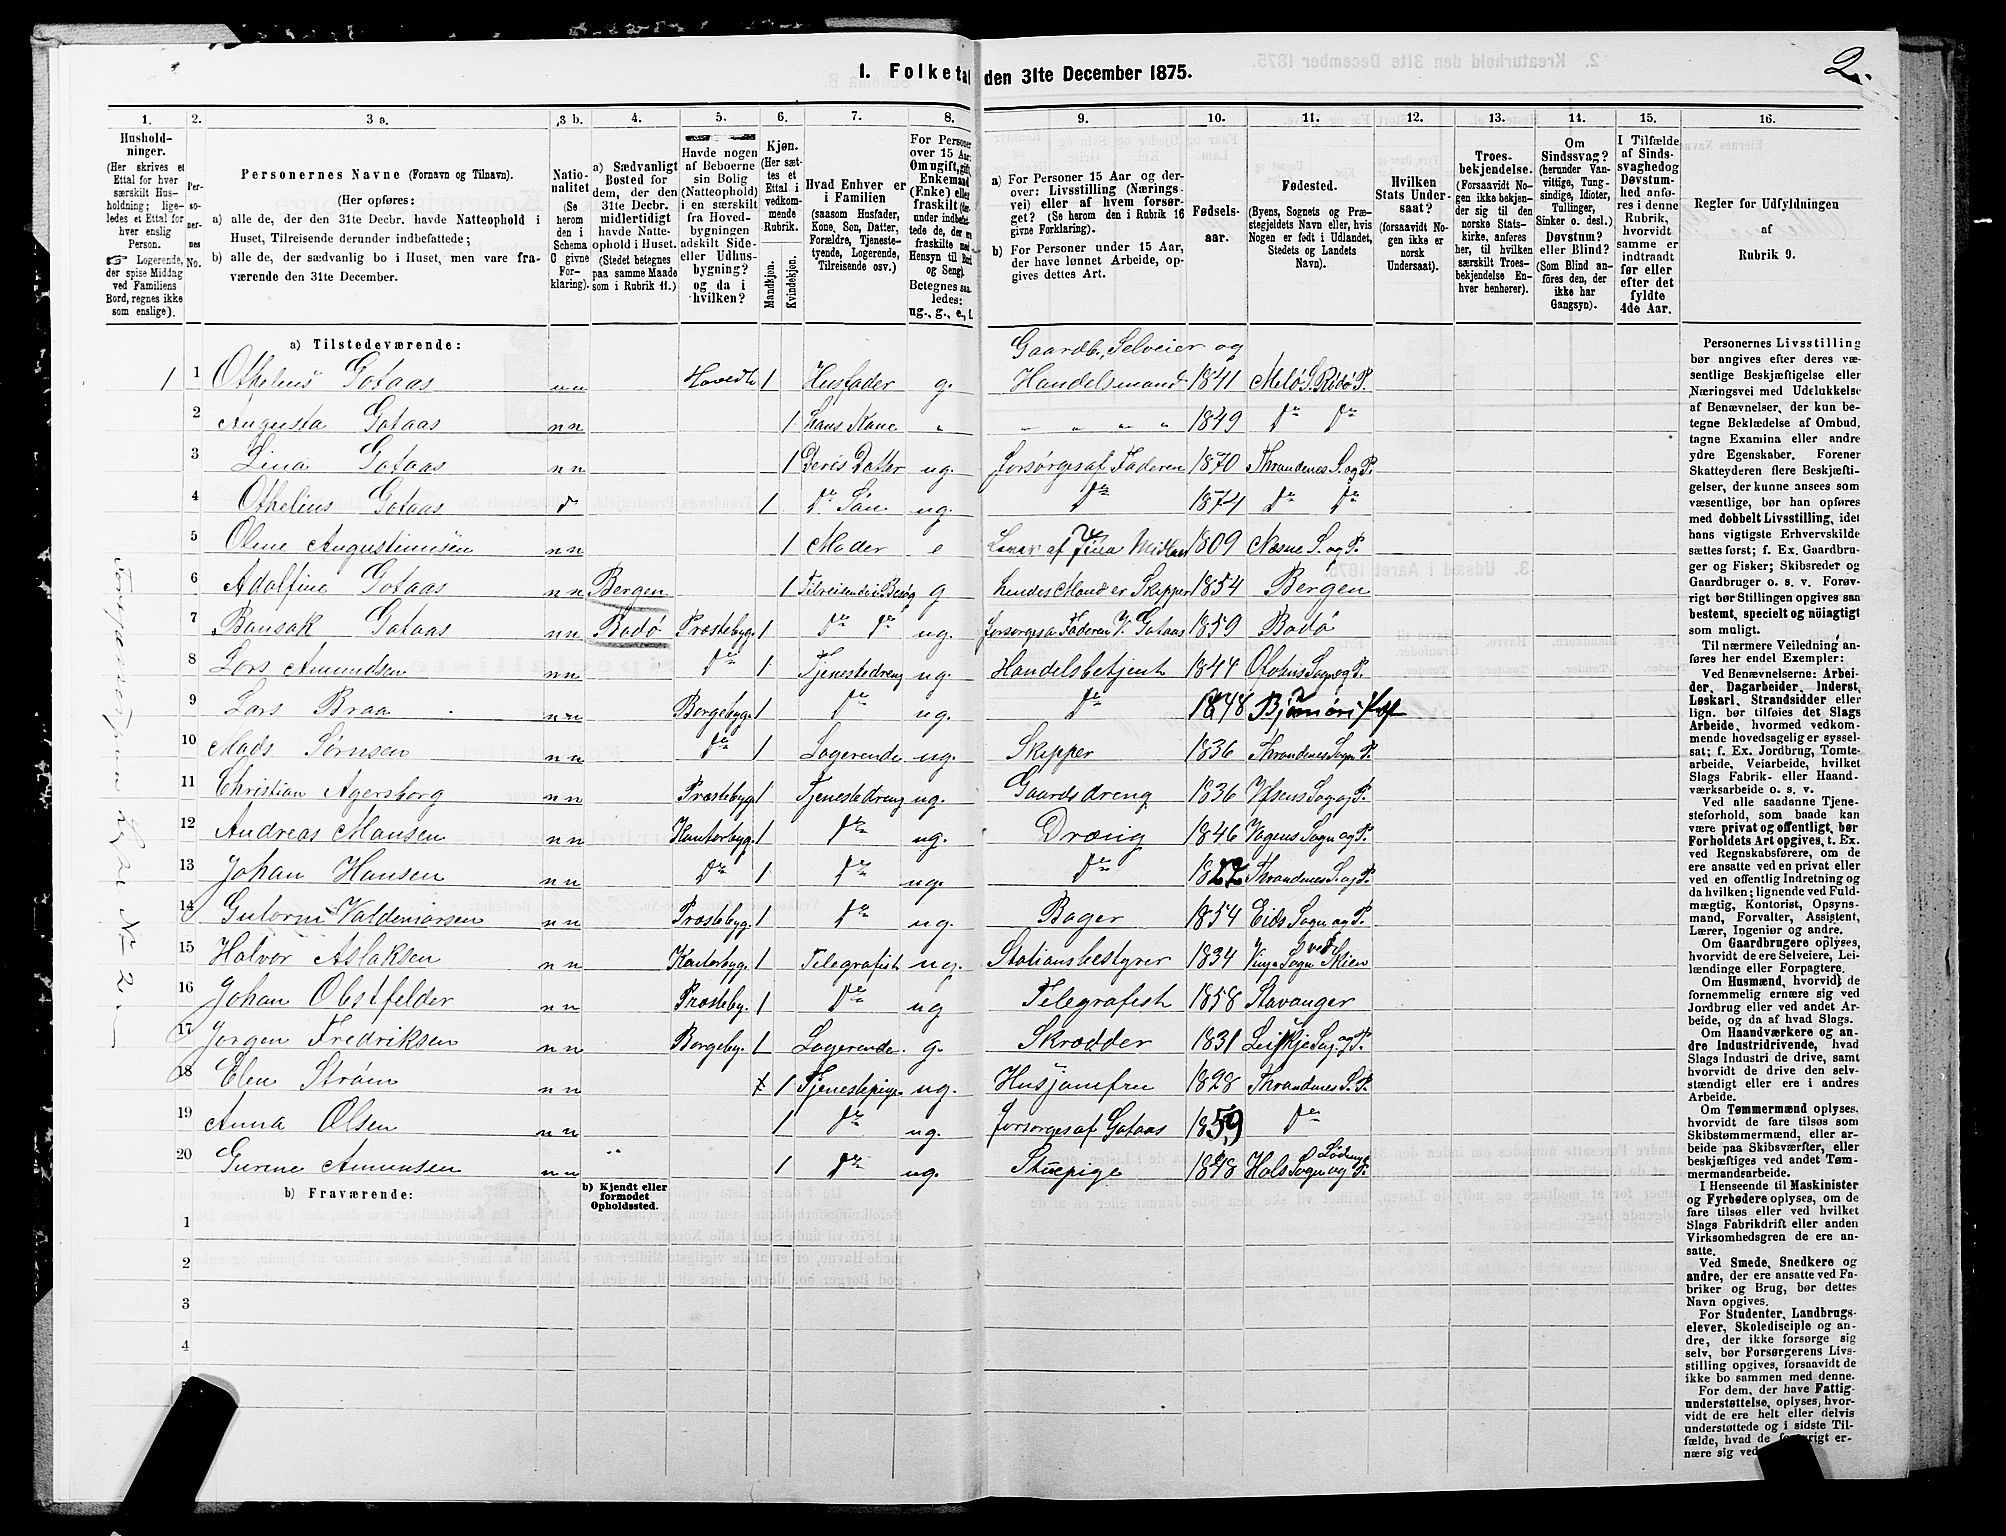 2.
1. Folketal den 31te December 1875.
1. 2. 3 a. 3 b. 4. 5. 6. 7. 8. 9. 10. 11. 12. 13. 14. 15. 16.
Hushold-
ninger.
(Her skrives et
Ettal for hver
særskilt Hus-
holdning; lige-
ledes et Ettal for
hver enslig
Person.
☞ Logerende,
der spise Middag
ved Familiens
Bord, regnes ikke
som enslige).
Per-
so-
ner-
nes
No.
Personernes Navne (Fornavn og Tilnavn).
(Her opføres:
a) alle de, der den 31te Decbr. havde Natteophold i
Huset, Tilreisende derunder indbefattede;
b) alle de, der sædvanlig bo i Huset, men vare fra-
værende den 31te December.
Natio-
nalitet
(Se
herom
den i
Schema
C givne
For-
klaring).
a) Sædvanligt
Bosted for
dem, der den
31te Decbr.
midlertidigt
havde Natte-
ophold i Huset.
(Stedet betegnes
paa samme Maade
som i Rubrik 11.)
Havde nogen
af Beboerne
sin Bolig
(Natteophold)
i en særskilt
fra Hoved-
bygningen
adskilt Side-
eller Udhus-
bygning?
og da i
hvilken?
Kjøn.
(Her sæt-
tes et
Ettal i
vedkom-
mende
Rubrik.
Mandkjøn.
Kvindekjøn.
Hvad Enhver er
i Familien
(saasom Husfader,
Kone, Søn, Datter,
Forældre, Tjeneste-
tyende, Logerende,
Tilreisende osv.)
For Personer
over 15 Aar:
Om ugift, gift,
Enkemand
(Enke) eller
fraskilt
Betegnes saa-
ledes:
ug., g., e., f.
a) For Personer 15 Aar og der-
over: Livsstilling (Nærings-
vei) eller af hvem forsør-
get? (Se herom den i Rubrik 16
givne Forklaring).
b) For Personer under 15 Aar,
der have lønnet Arbeide, op-
gives dettes Art.
Fødsels-
aar.
Fødested.
(Byens, Sognets og Præ-
stegjeldets Navn eller, hvis
Nogen er født i Udlandet,
Stedets og Landets
Navn).
Hvilken
Stats Under-
saat?
(forsaavidt No-
gen ikke er
norsk
Undersaat).
Troes-
bekjendelse.
(Forsaavidt No-
gen ikke bekjen-
der sig til den
norske Stats-
kirke, anføres
her, til hvilken
særskilt Troes-
bekjendelse En-
hver henhører).
Om
Sindssvag?
(herunder Van-
vittige, Tung-
sindige, Idioter,
Tullinger,
Sinker o. desl.)
Døvstum?
eller Blind?
(Som Blind an-
føres den, der
ikke har
Gangsyn).
I Tilfælde
af Sinds-
svaghed og
Døvstum-
hed anfø-
res i denne
Rubrik,
hvorvidt
samme er
indtraadt
før eller
efter det
fyldte
4de Aar.
Regler for Udfyldningen
af
Rubrik 9.
a) Tilstedeværende:
Gaardb., Selveier og
1 1 Othelius Gotaas nn Hovedb 1 Husfader g. Handelsmand 1841 Melø S. Rødø P.
2 Augusta Gotaas nn 1 Hans Kone " " " " " 1849 Do Do
3 Lina Gotaas nn 1 Deres Datter ug. forsørges af Faderen 1870 Throndenes S. og P.
4 Othelius Gotaas d 1 Do Søn ug. Do 1874 Do Do
5 Oline Augustinusen nn 1 Moder e af Midler 1809 Næsne S. og P.
6 Adolfine Gotaas nn Bergen 1 Tilreisende i Besøg g hendes Mand er Skipper 1854 Bergen
7 Gotaas nn Bodø Præstebyg. 1 Do Do ug. forsørges a Faderen Gotaas 1859 Bodø
8 Lars Amundsen nn Do 1 Tjenestedreng ug. Handelsbetjent 1844 Sogn og P.
9 Lars Braa nn Borgebyg. 1 Do ug. Do 1848
10 Mads Sørnsen nn Do 1 Logerende ug. Skipper 1836 Throndenes Sogn P.
11 Christian Agersborg nn Præstebyg. 1 Tjenestedreng ug. Gaardsdreng 1836 Sog og P.
12 Andreas Mansen nn Kontorbyg. 1 Do ug. Dræng 1846 Vagens Sogn og P.
13 Johan Hansen nn Do 1 Do ug. Do Throndenes S. og P.
14 Gutorm Valdemarsen nn Præstebyg. 1 Do ug. Bager 1854 Eids Sogn og P.
15 Halvor Aslaksen nn Kontorbyg. 1 Telegrafist ug. Stationsbestyrer 1834 Vinje Sogn ved Skien
16 Johan Obstfelder nn Præsteby. 1 Do ug Telegrafist 1858 Stavanger
17 Jørgen Fredriksen nn Borgeby. 1 Logerende. g. Skrædder 1831 Sog. og P.
18 Elen Strøm nn 1 Tjenestepige ug. Husjomfru 1828 Throndenes S. P.
19 Anna Olsen nn 1 Do ug. forsørges af Gotaas 1859 Do
20 Gurine Amunsen nn 1 Do ug. Stuepige 1848 Hols Sogn og P.
b) Fraværende:
b) Kjendt eller
formodet
Opholdssted.
1
2
3
4
Personernes Livsstilling
bør angives efter deres væ-
sentlige Beskjæftigelse eller
Næringsvei med Udelukkelse
af Benævnelser, der kun be-
tegne Beklædelse af Ombud,
tagne Examina eller andre
ydre Egenskaber. Forener
Skatteyderen flere Beskjæfti-
gelser, der kunne ansees som
væsentlige, bør han opføres
med dobbelt Livsstilling, idet
hans vigtigste Erhvervskilde
sættes først; f. Ex. Gaardbru-
ger og Fisker; Skibsreder og
Gaardbruger o. s. v. Forøv-
rigt bør Stillingen opgives saa
bestemt, specielt og nøiagtigt
som muligt.
Til nærmere Veiledning an-
føres her endel Exempler:
Ved Benævnelserne: Arbei-
der, Dagarbeider, Inderst,
Løskarl, Strandsidder eller
lign. bør tilføies det Slags
Arbeide, hvormed vedkom-
mende hovedsagelig er syssel-
sat; f. Ex. Jordbrug, Tomte-
arbeide, Veiarbeide, hvilket
Slags Fabrik- eller Haand-
værksarbeide o. s. v.
Ved alle saadanne Tjene-
steforhold, som baade kan
være privat og offentligt, bør
Forholdets Art opgives, t. Ex.
ved Regnskabsførere, om de
ere ansatte ved en privat eller
ved en offentlig Indretning og
da hvilken; lignende ved Fuld-
mægtig, Kontorist, Opsyns-
mand, Forvalter, Assistent,
Lærer, Ingeniør og andre.
Om Gaardbrugere oplyses,
hvorvidt de ere Selveiere, Lei-
lændinge eller Forpagtere.
Om Husmænd, hvorvidt de
fornemmelig ernære sig ved
Jordbrug eller ved andet Ar-
beide, og da af hvad Slags.
Om Haandværkere og an-
dre Industridrivende, hvad
Slags Industri de drive, samt
hvorvidt de drive den selv-
stændigt eller ere i andres
Arbeide.
Om Tømmermænd oplyses,
hvorvidt de fare tilsøs som
Skibstømmermænd, eller ar-
beide paa Skibsværfter, eller
beskjæftiges ved andet Tøm-
mermandsarbeide.
I Henseende til Maskinister
og Fyrbødere oplyses, om de
fare tilsøs eller ved hvilket
Slags Fabrikdrift eller anden
Virksomhedsgren de ere an-
satte.
Ved Smede, Snedkere og
andre, der ere ansatte ved Fa-
briker og Brug, bør dettes
Navn opgives.
For Studenter, Landbrugs-
elever, Skoledisciple og an-
dre, der ikke forsørge sig
selv, bør Forsørgerens Livs-
stilling opgives, forsaavidt de
ikke bo sammen med denne.
For dem, der have Fattig-
understøttelse, oplyses, hvor-
vidt de ere helt eller delvis
understøttede og i sidste Til-
fælde, hvad de forøvrigt er-
nære sig ved